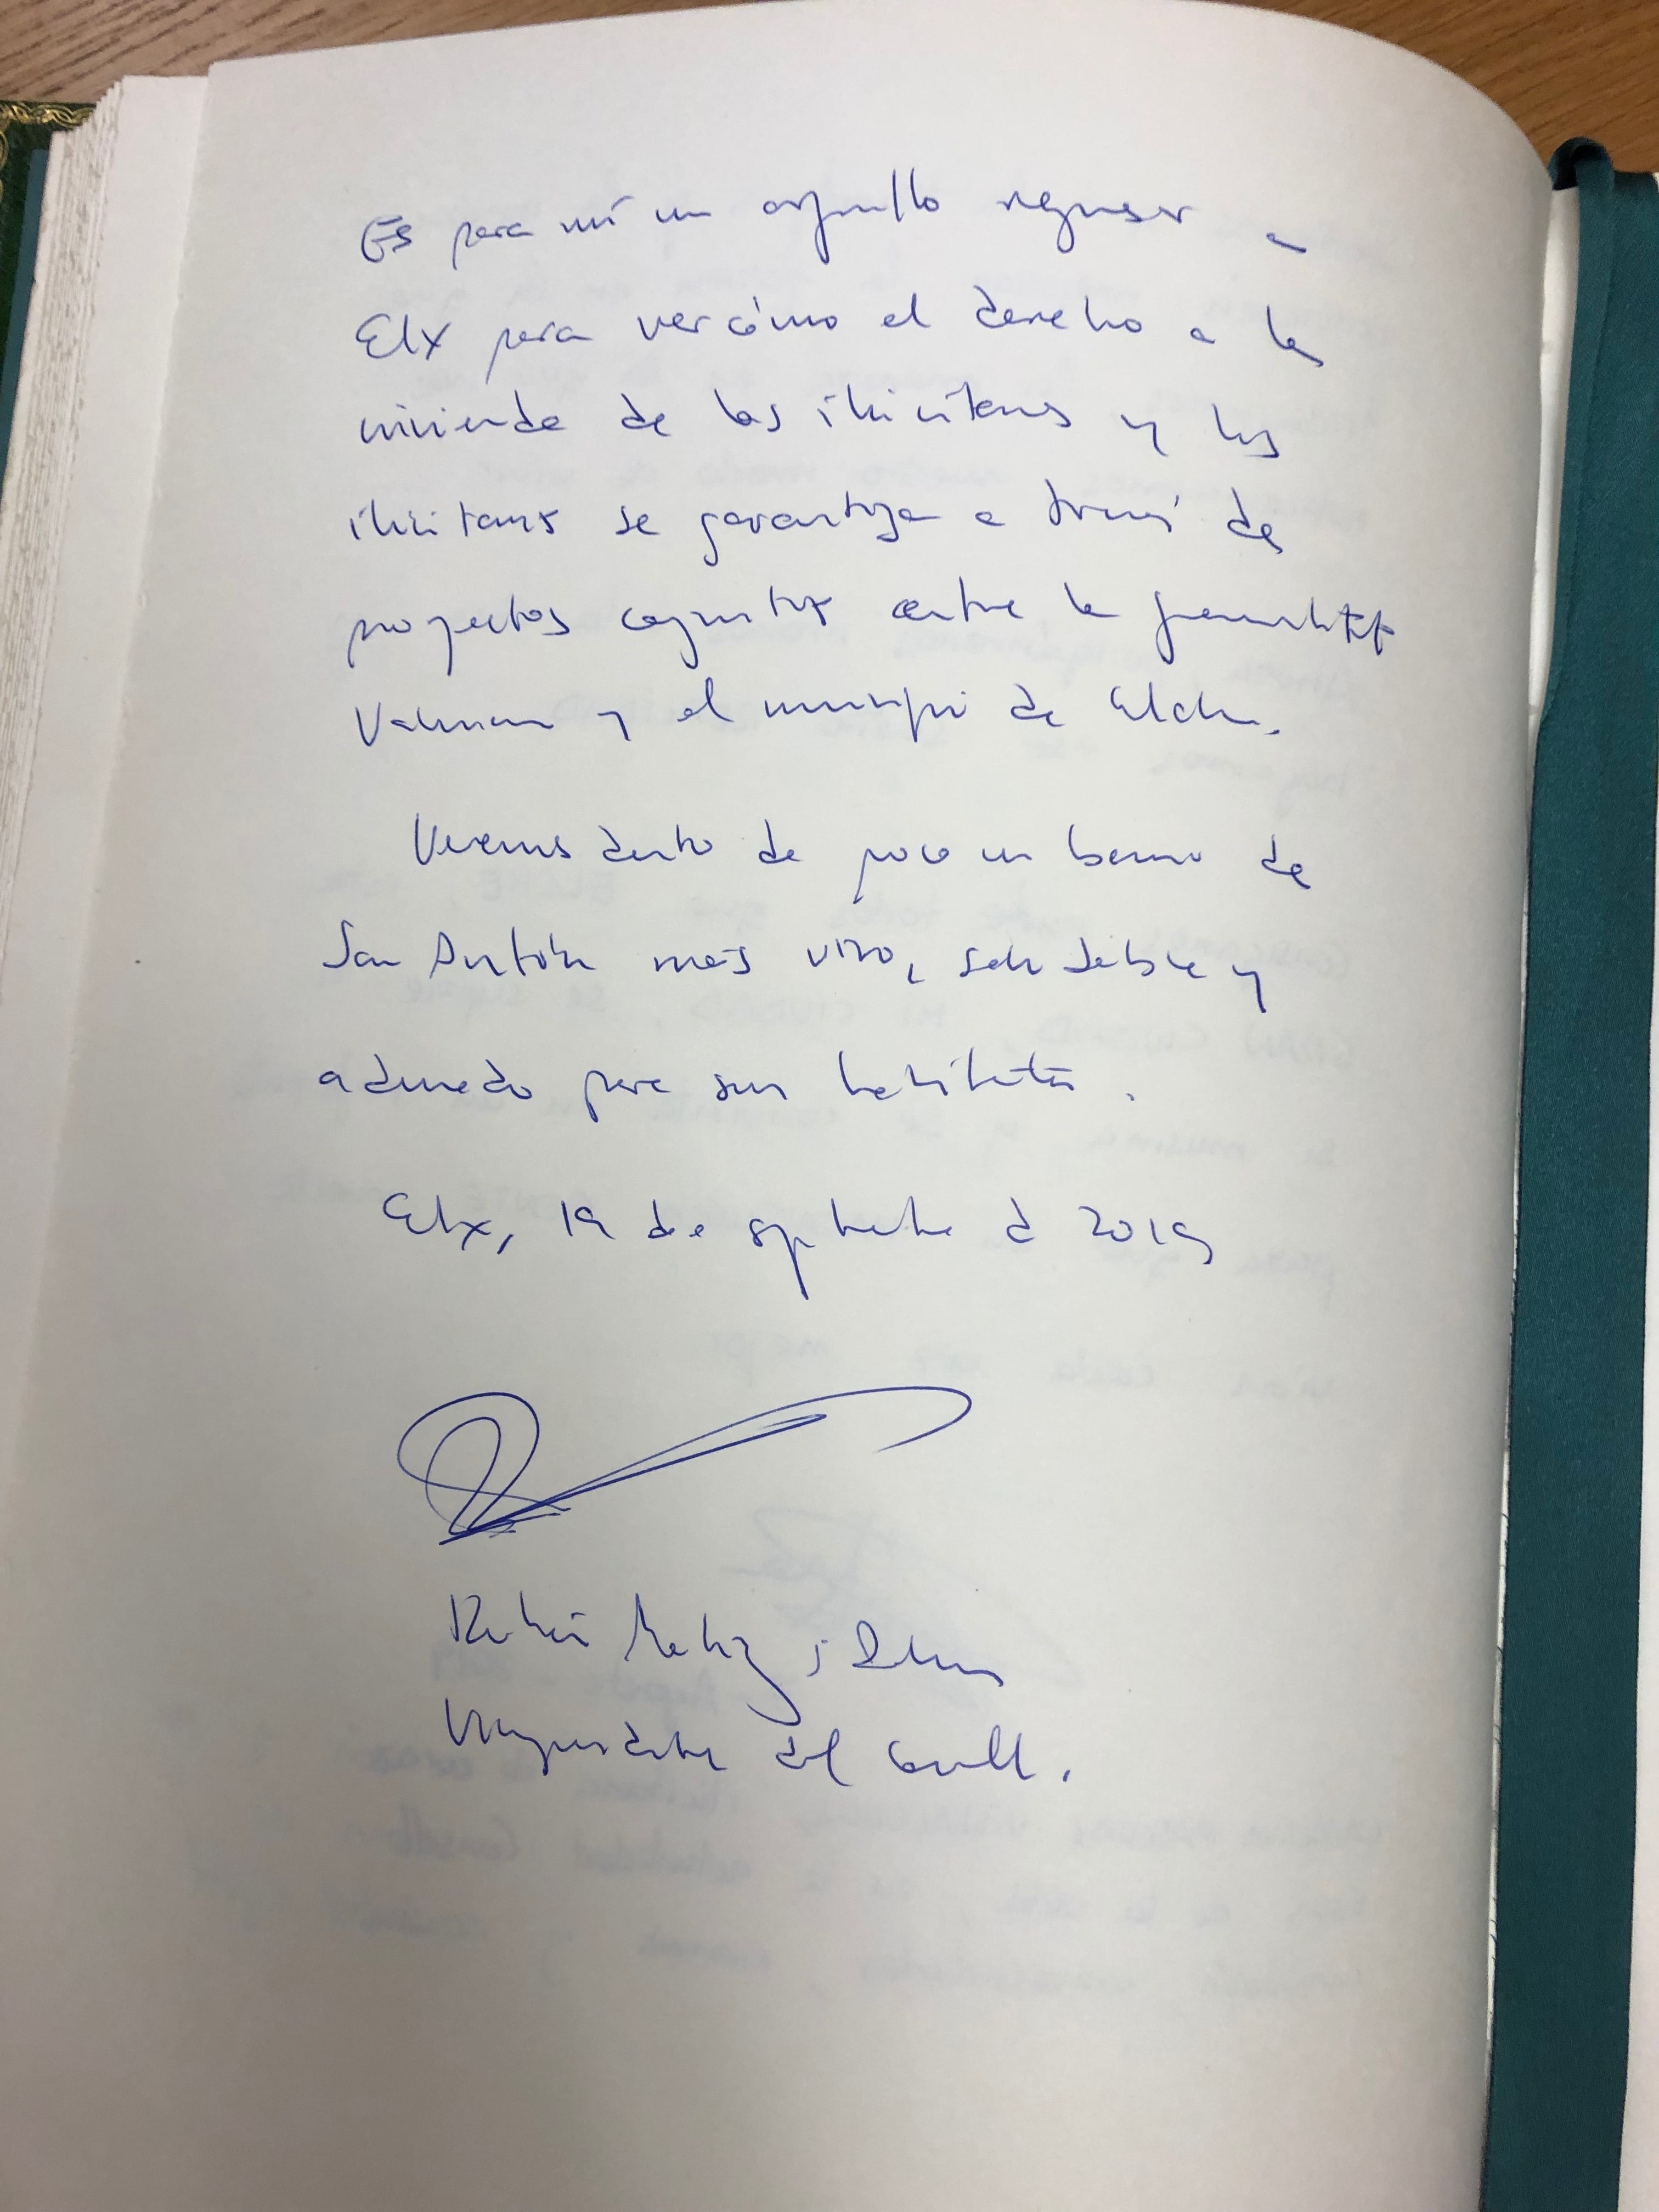 Es para mí un orgullo regresar a
Elx para ver cómo el derecho a la
vivienda de las ilicitanas y los
ilicitanos se garantiza a través de
proyectos conjuntos entre la Generalitat
Valenciana y el municipi de Elche.
Veremos dentro de poco un barrio de
San Antón más vivo, saludable y
adecuado para sus habitantes.
Elx, 19 de septiembre de 2019
Rubén Martínez Dalmau
Vicepresidente del Consell.